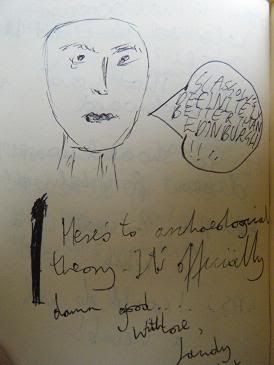 GLASGOW'S
DEFINITELY
BETTER THAN
EDINBURGH
!!..
Here's to archaeological
theory. It's officially
damn good.....
With love,